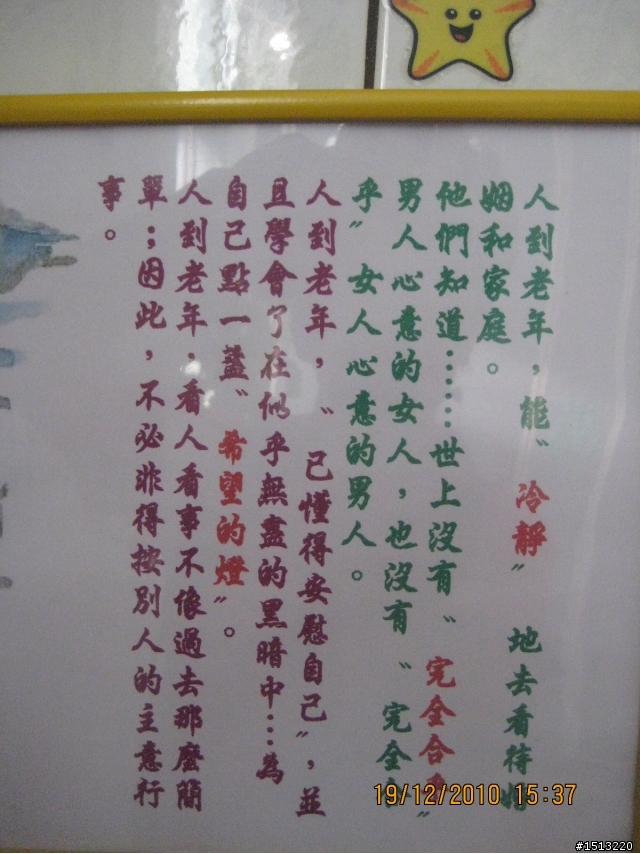 人到老年，能〝冷靜〞地去看待婚
姻和家庭。
他們知道……世上沒有〝完全合乎〞
男人心意的女人，也沒有〝完全合
乎〞女人心意的男人。
人到老年，〝已懂得安慰自己〞，並
且學會了在似乎無盡的黑暗中…為
自己點一盞〝希望的燈〞。
人到老年，看人看事不像過去那麼簡
單；因此，不必非得按別人的主意行
事。
19/12/2010 15:37
#1513220